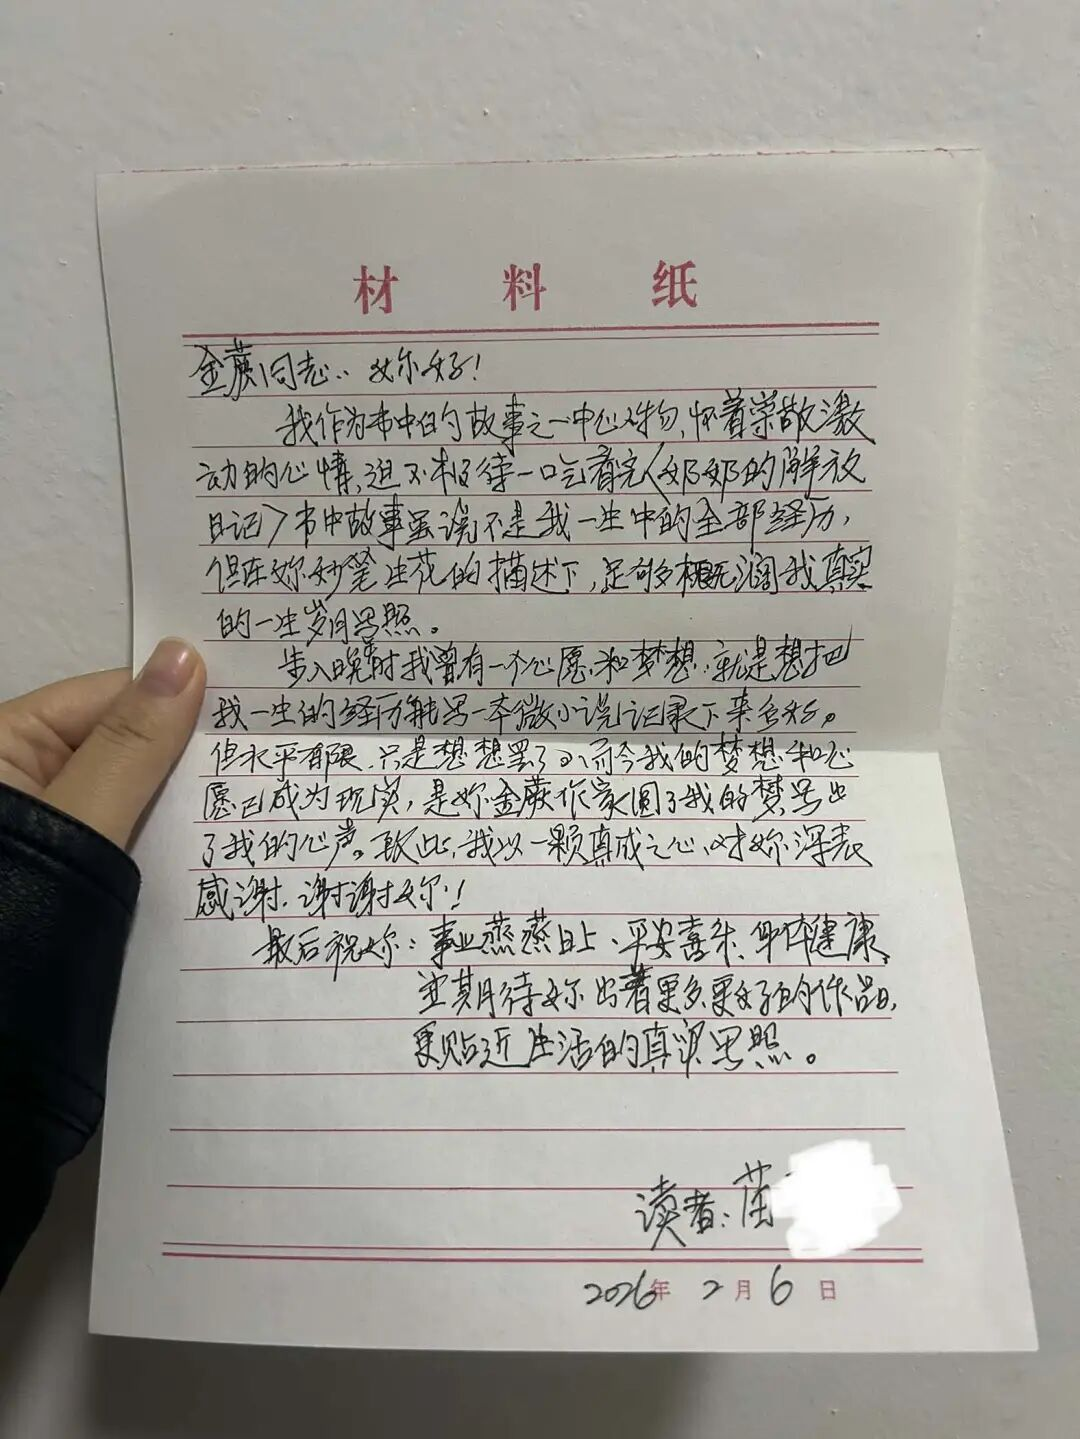 材料纸
金蕨同志：妳好！
我作为书中的故事之一中心人物，怀着崇敬激
动的心情，迫不极待一口气看完《奶奶的解放
日记》书中故事虽说不是我一生中的全部经历，
但在妳妙笔生花的描述下，足够多概况澜我真实
的一生岁月写照。
步入晚年时我曾有一个心愿和梦想，就是想把
我一生的经历能写一本微小说记录下来多好。
但水平有限，只是想想罢了。而今我的梦想和心
愿已成为现实，是妳金蕨作家圆了我的梦写出
了我的心声。致此，我以一颗真成之心，对妳深表
感谢，谢谢妳！
最后祝妳：事业蒸蒸日上、平安喜乐、身体健康，
并期待妳出着更多更好的作品，
更贴近生活的真实写照。
读者：苗
2026年2月6日